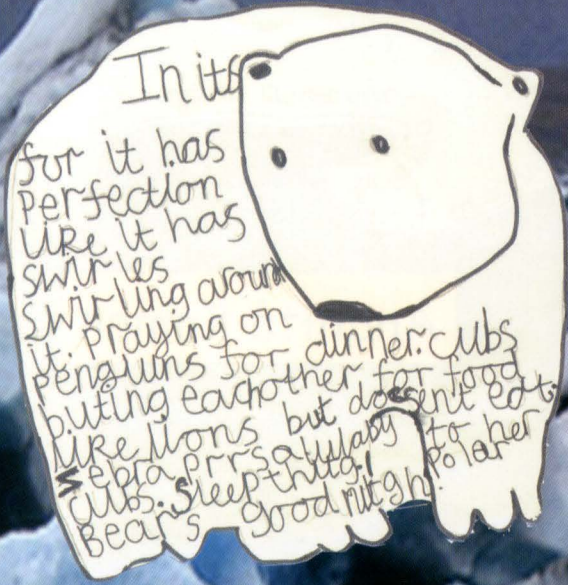 In its
fur it has
perfection
like it has
swirles
swirling around
it. praying on
penguins for dinner. cubs
buting eachother for food
like lions but doesent eat
zebra prrsalulaby to her
cubs. sleep Polar
Bears good